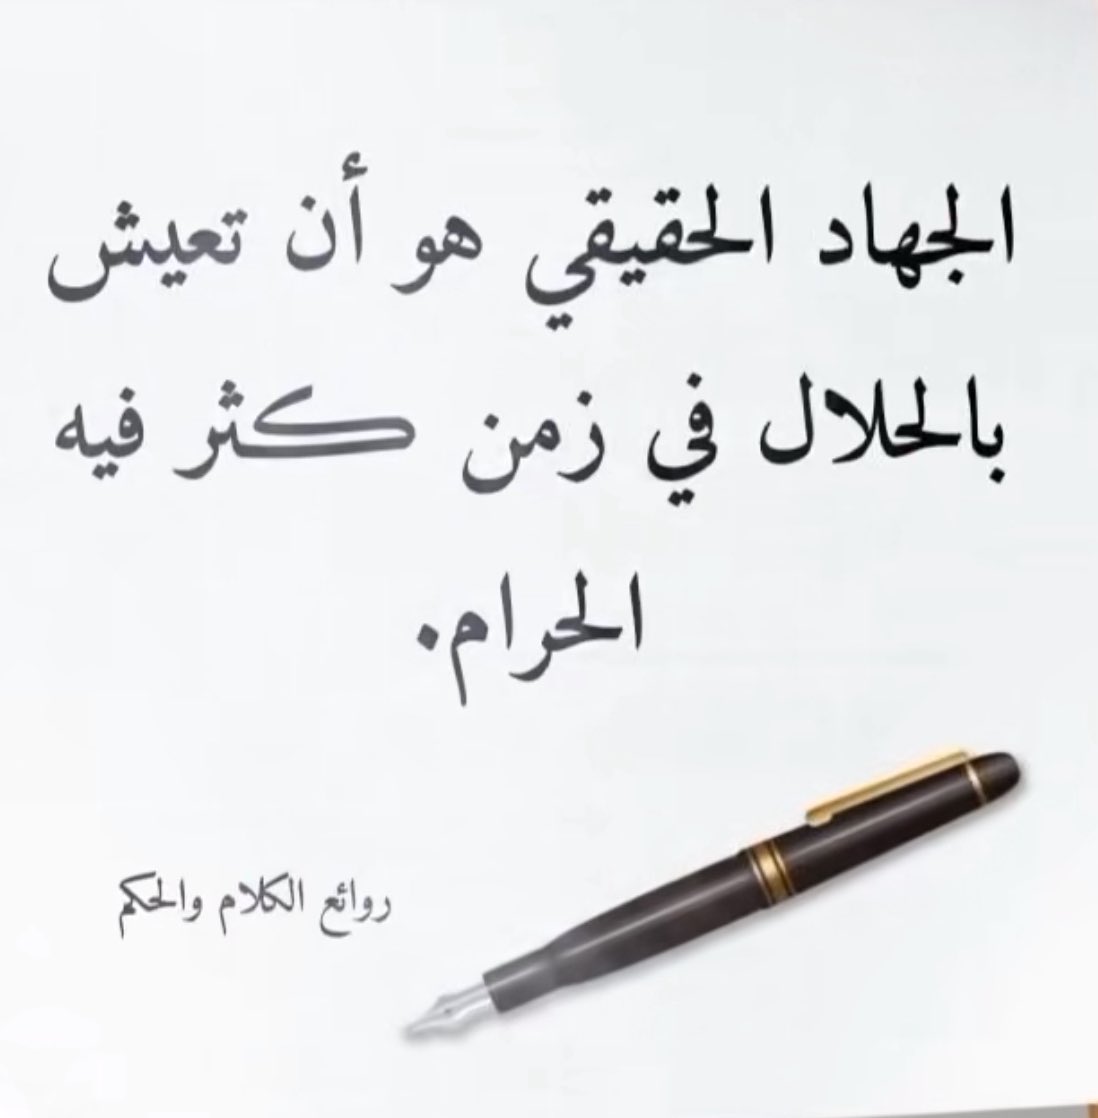 الجهاد الحقيقي هو أن تعيش
بالحلال في زمن كثر فيه
الحرام.
روائع الكلام والحكم